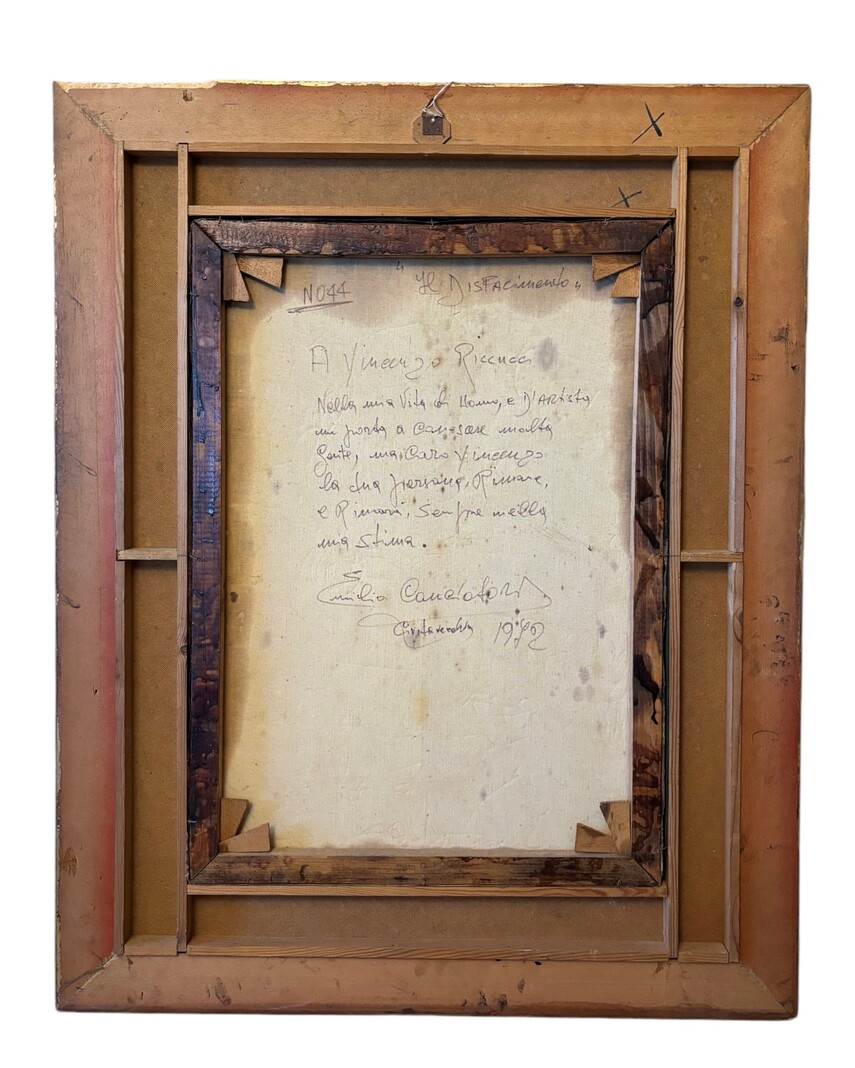 N044 "Il DisFacimento"
A Vincenzo Ricucci
Nella mia Vita di Uomo, e D'Artista
mi porta a conoscere molta
Gente, ma Caro Vincenzo
la tua persona, Rimane,
e Rimarrà, Sempre nella
mia Stima.
Emilio
Civitavecchia 1972